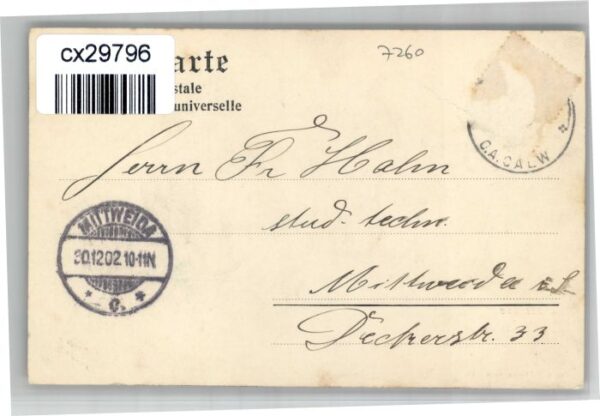 cx29796
7260
arte
stale
universelle
C.A.CALW
Herrn Fr Hahn
stud. techn.
MITTWEIDA
30.12.02.10-11N
* c. *
Mittweida i. S.
Deckerstr. 33